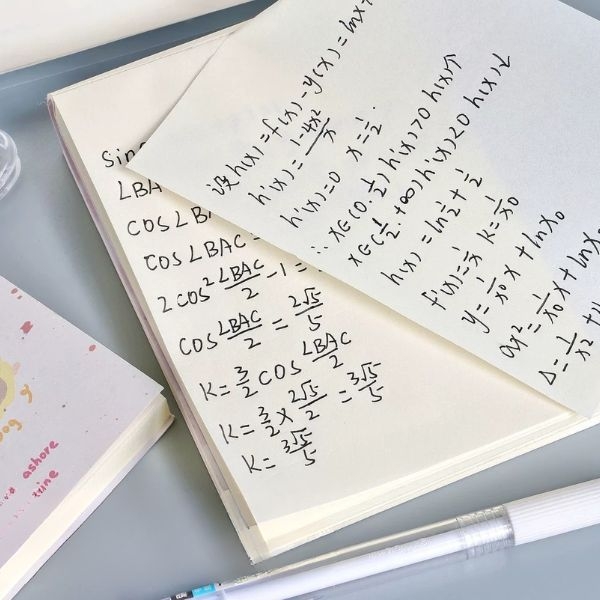 Sin
∠BA
COS∠BA
COS∠BAC=
2cos²∠BAC/2-1=
COS∠BAC/2=2√5/5
K=3/2COS∠BAC/2
K=3/2×2√5/2=3√5/5
K=3√5/5
设h(x)=f(x)-y(x)=lnx+
h'(x)=1-4x²/x
h'(x)=0 x=1/2.
∴x∈(0.1/2)h'(x)>0 h(x)↑
x∈(1/2.+∞)h'(x)<0 h(x)↓
h(x)=ln1/2+1/2
f'(x)=1/x K=1/x₀
y=1/x₀x+lnx₀
ax²=1/x₀x+lnx₀
Δ=1/x²+4
ashore